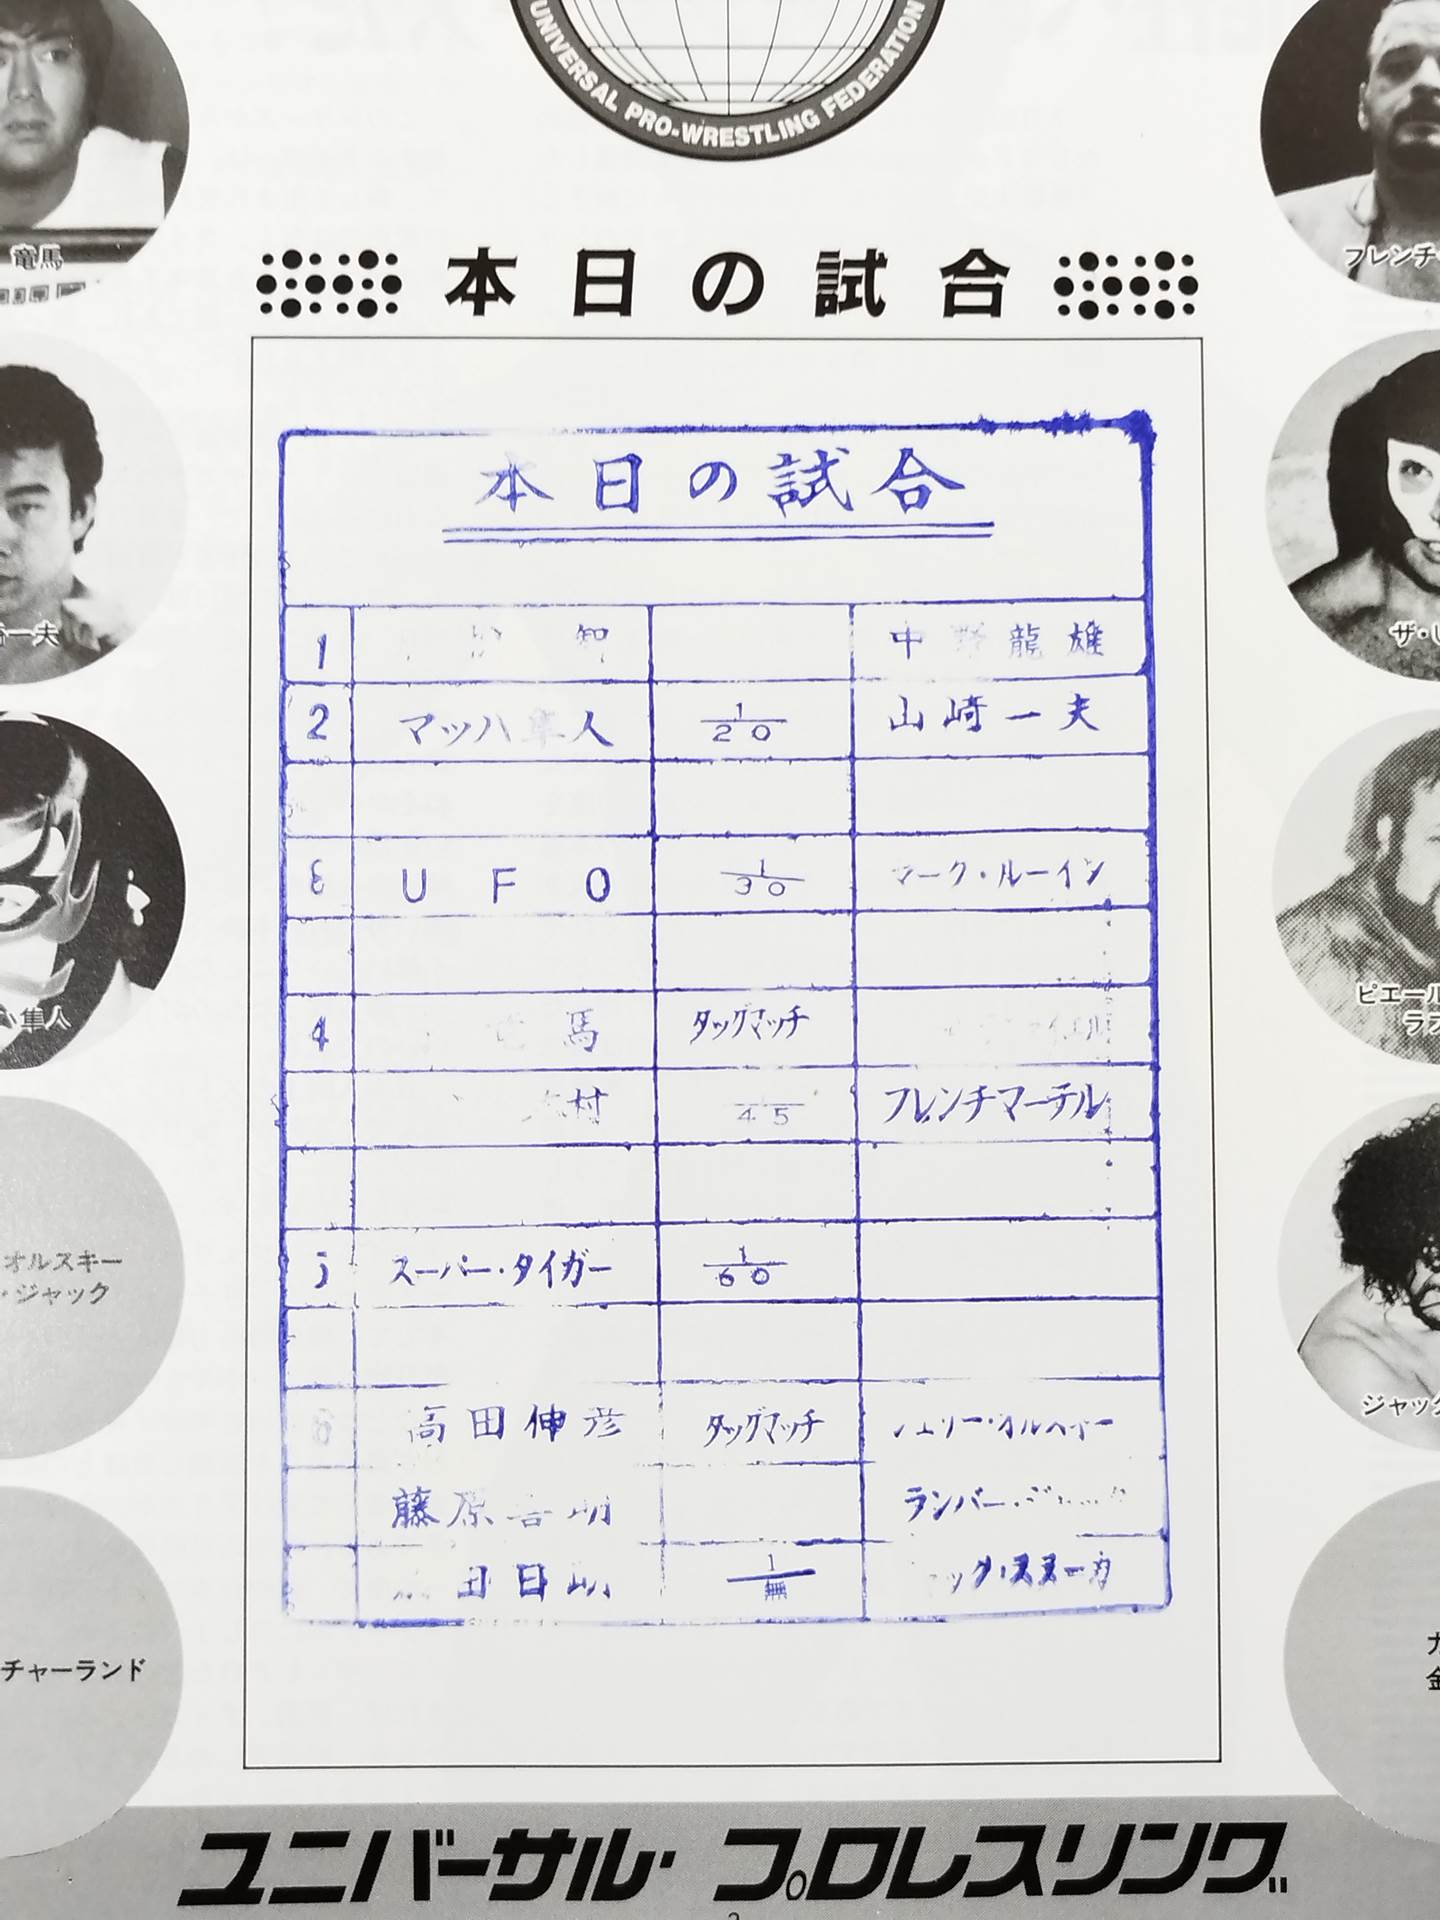 UNIVERSAL PRO-WRESTLING FEDERATION
竜馬
フレンチ
本日の試合
本日の試合
1 智 中野龍雄
2 マッハ隼人 1/20 山崎一夫
一夫
ザ・
UFO 1/30 マーク・ルーイン
隼人
ピエール
ラ
4 馬 タッグマッチ
村 45 フレンチマーテル
オルスキー
・ジャック
スーパー・タイガー 1/60
ジャック
高田伸彦 タッグマッチ
藤原 ランバー・
1/無 スヌーカ
チャーランド
カ
金
ユニバーサル・プロレスリング